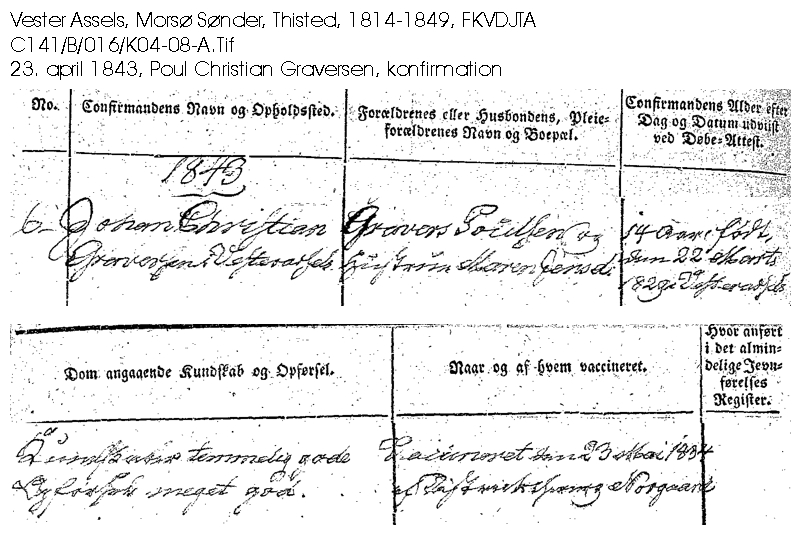 Vester Assels, Morsø Sønder, Thisted, 1814-1849, FKVDJTA
C141/B/016/K04-08-A.Tif
23. april 1843, Poul Christian Graversen, konfirmation
No.
Confirmandens Navn og Opholdssted.
Forældrenes eller Husbondens, Pleie-
forældrenes Navn og Boepæl.
Confirmandens Alder efter
Dag og Datum udviist
ved Døbe-Attest.
1843
6-
Johan Christian
Graversen i Vesterassels
Gravers Poulsen og
Hustrue Maren Jensd.
14 Aar, født
den 22 Marts
1829 i Vesterassels
Dom angaaende Kundskab og Opførsel.
Naar og af hvem vaccineret.
Hvor anført
i det almin-
delige Jevn-
førelses
Register.
Kundskaber temmelig gode
Opførsel meget god.
Vaccineret den 23 Mai 1834
af Norgaard